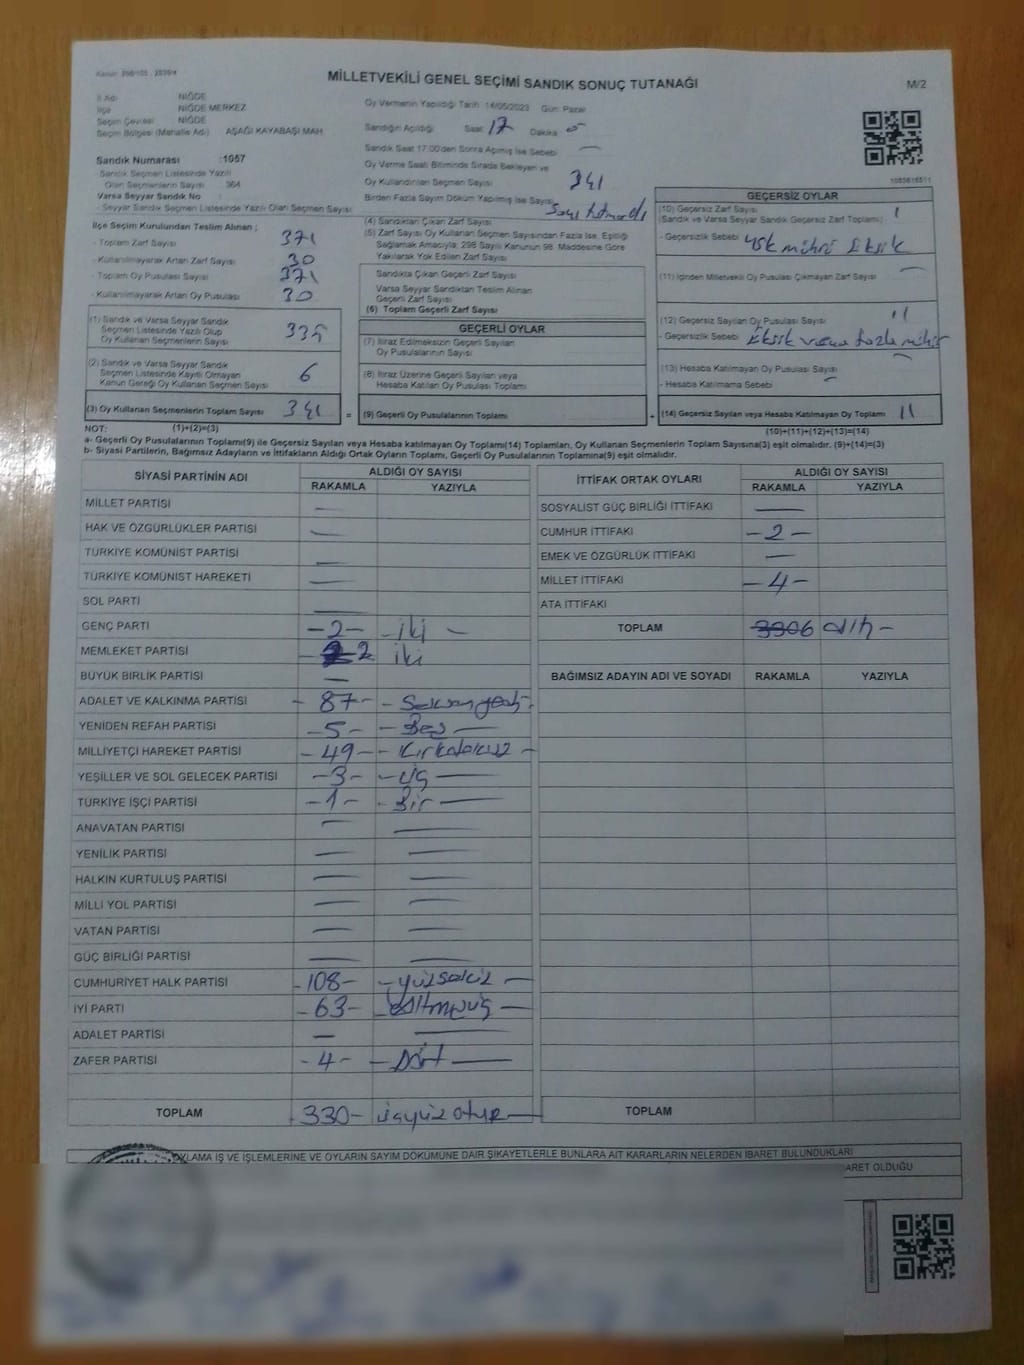 MİLLETVEKİLİ GENEL SEÇİMİ SANDIK SONUÇ TUTANAĞI
M/2
İl Adı NİĞDE
İlçe NİĞDE MERKEZ
Seçim Çevresi NİĞDE
Seçim Bölgesi (Mahalle Adı) AŞAĞI KAYABAŞI MAH
Sandık Numarası :1057
Sandık Seçmen Listesinde Yazılı
Olan Seçmenlerin Sayısı 364
Varsa Seyyar Sandık No :
- Seyyar Sandık Seçmen Listesinde Yazılı Olan Seçmen Sayısı
İlçe Seçim Kurulundan Teslim Alınan ;
- Toplam Zarf Sayısı 371
- Kullanılmayarak Artan Zarf Sayısı 30
- Toplam Oy Pusulası Sayısı 371
- Kullanılmayarak Artan Oy Pusulası 30
(1) Sandık ve Varsa Seyyar Sandık
Seçmen Listesinde Yazılı Olup
Oy Kullanan Seçmenlerin Sayısı 335
(2) Sandık ve Varsa Seyyar Sandık
Seçmen Listesinde Kayıtlı Olmayan
Kanun Gereği Oy Kullanan Seçmen Sayısı 6
(3) Oy Kullanan Seçmenlerin Toplam Sayısı 341 =
Oy Vermenin Yapıldığı Tarih 14/05/2023 Gün: Pazar
Sandığın Açıldığı Saat 17 Dakika
Sandık Saat 17:00'den Sonra Açılmış İse Sebebi —
Oy Verme Saati Bitiminde Sırada Bekleyen ve
Oy Kullandırılan Seçmen Sayısı 341
Birden Fazla Sayım Döküm Yapılmış İse Sayısı
(4) Sandıktan Çıkan Zarf Sayısı
(5) Zarf Sayısı Oy Kullanan Seçmen Sayısından Fazla İse, Eşitliği
Sağlamak Amacıyla, 298 Sayılı Kanunun 98. Maddesine Göre
Yakılarak Yok Edilen Zarf Sayısı
Sandıkta Çıkan Geçerli Zarf Sayısı
Varsa Seyyar Sandıktan Teslim Alınan
Geçerli Zarf Sayısı
(6) Toplam Geçerli Zarf Sayısı
GEÇERLİ OYLAR
(7) İtiraz Edilmeksizin Geçerli Sayılan
Oy Pusulalarının Sayısı
(8) İtiraz Üzerine Geçerli Sayılan veya
Hesaba Katılan Oy Pusulası Toplamı
(9) Geçerli Oy Pusulalarının Toplamı +
1083616511
GEÇERSİZ OYLAR
(10) Geçersiz Zarf Sayısı
(Sandık ve Varsa Seyyar Sandık Geçersiz Zarf Toplamı) 1
- Geçersizlik Sebebi ysk mührü Eksik
(11) İçinden Milletvekili Oy Pusulası Çıkmayan Zarf Sayısı —
(12) Geçersiz Sayılan Oy Pusulası Sayısı 11
- Geçersizlik Sebebi Eksik veya fazla mühür
(13) Hesaba Katılmayan Oy Pusulası Sayısı —
- Hesaba Katılmama Sebebi
(14) Geçersiz Sayılan veya Hesaba Katılmayan Oy Toplamı 11
NOT: (1)+(2)=(3) (10)+(11)+(12)+(13)=(14)
a- Geçerli Oy Pusulalarının Toplamı(9) ile Geçersiz Sayılan veya Hesaba katılmayan Oy Toplamı(14) Toplamları, Oy Kullanan Seçmenlerin Toplam Sayısına(3) eşit olmalıdır. (9)+(14)=(3)
b- Siyasi Partilerin, Bağımsız Adayların ve İttifakların Aldığı Ortak Oyların Toplamı, Geçerli Oy Pusulalarının Toplamına(9) eşit olmalıdır.
SİYASİ PARTİNİN ADI ALDIĞI OY SAYISI
RAKAMLA YAZIYLA
MİLLET PARTİSİ —
HAK VE ÖZGÜRLÜKLER PARTİSİ —
TÜRKİYE KOMÜNİST PARTİSİ —
TÜRKİYE KOMÜNİST HAREKETİ —
SOL PARTİ —
GENÇ PARTİ -2- -iki —
MEMLEKET PARTİSİ 2 iki
BÜYÜK BİRLİK PARTİSİ —
ADALET VE KALKINMA PARTİSİ - 87- - Seksenyedi-
YENİDEN REFAH PARTİSİ -5- - Beş —
MİLLİYETÇİ HAREKET PARTİSİ - 49- - Kırkdokuz -
YEŞİLLER VE SOL GELECEK PARTİSİ -3- - üç —
TÜRKİYE İŞÇİ PARTİSİ -1- - Bir —
ANAVATAN PARTİSİ — —
YENİLİK PARTİSİ — —
HALKIN KURTULUŞ PARTİSİ — —
MİLLİ YOL PARTİSİ — —
VATAN PARTİSİ — —
GÜÇ BİRLİĞİ PARTİSİ — —
CUMHURİYET HALK PARTİSİ -108- - yüzsekiz —
İYİ PARTİ - 63- - Altmışüç —
ADALET PARTİSİ — —
ZAFER PARTİSİ - 4 - - Dört —
TOPLAM - 330- üçyüz otuz —
İTTİFAK ORTAK OYLARI ALDIĞI OY SAYISI
RAKAMLA YAZIYLA
SOSYALİST GÜÇ BİRLİĞİ İTTİFAKI —
CUMHUR İTTİFAKI - 2 -
EMEK VE ÖZGÜRLÜK İTTİFAKI —
MİLLET İTTİFAKI - 4 -
ATA İTTİFAKI
TOPLAM 6 altı -
BAĞIMSIZ ADAYIN ADI VE SOYADI RAKAMLA YAZIYLA
TOPLAM
OYLAMA İŞ VE İŞLEMLERİNE VE OYLARIN SAYIM DÖKÜMÜNE DAİR ŞİKAYETLERLE BUNLARA AİT KARARLARIN NELERDEN İBARET BULUNDUKLARI
ARET OLDUĞU